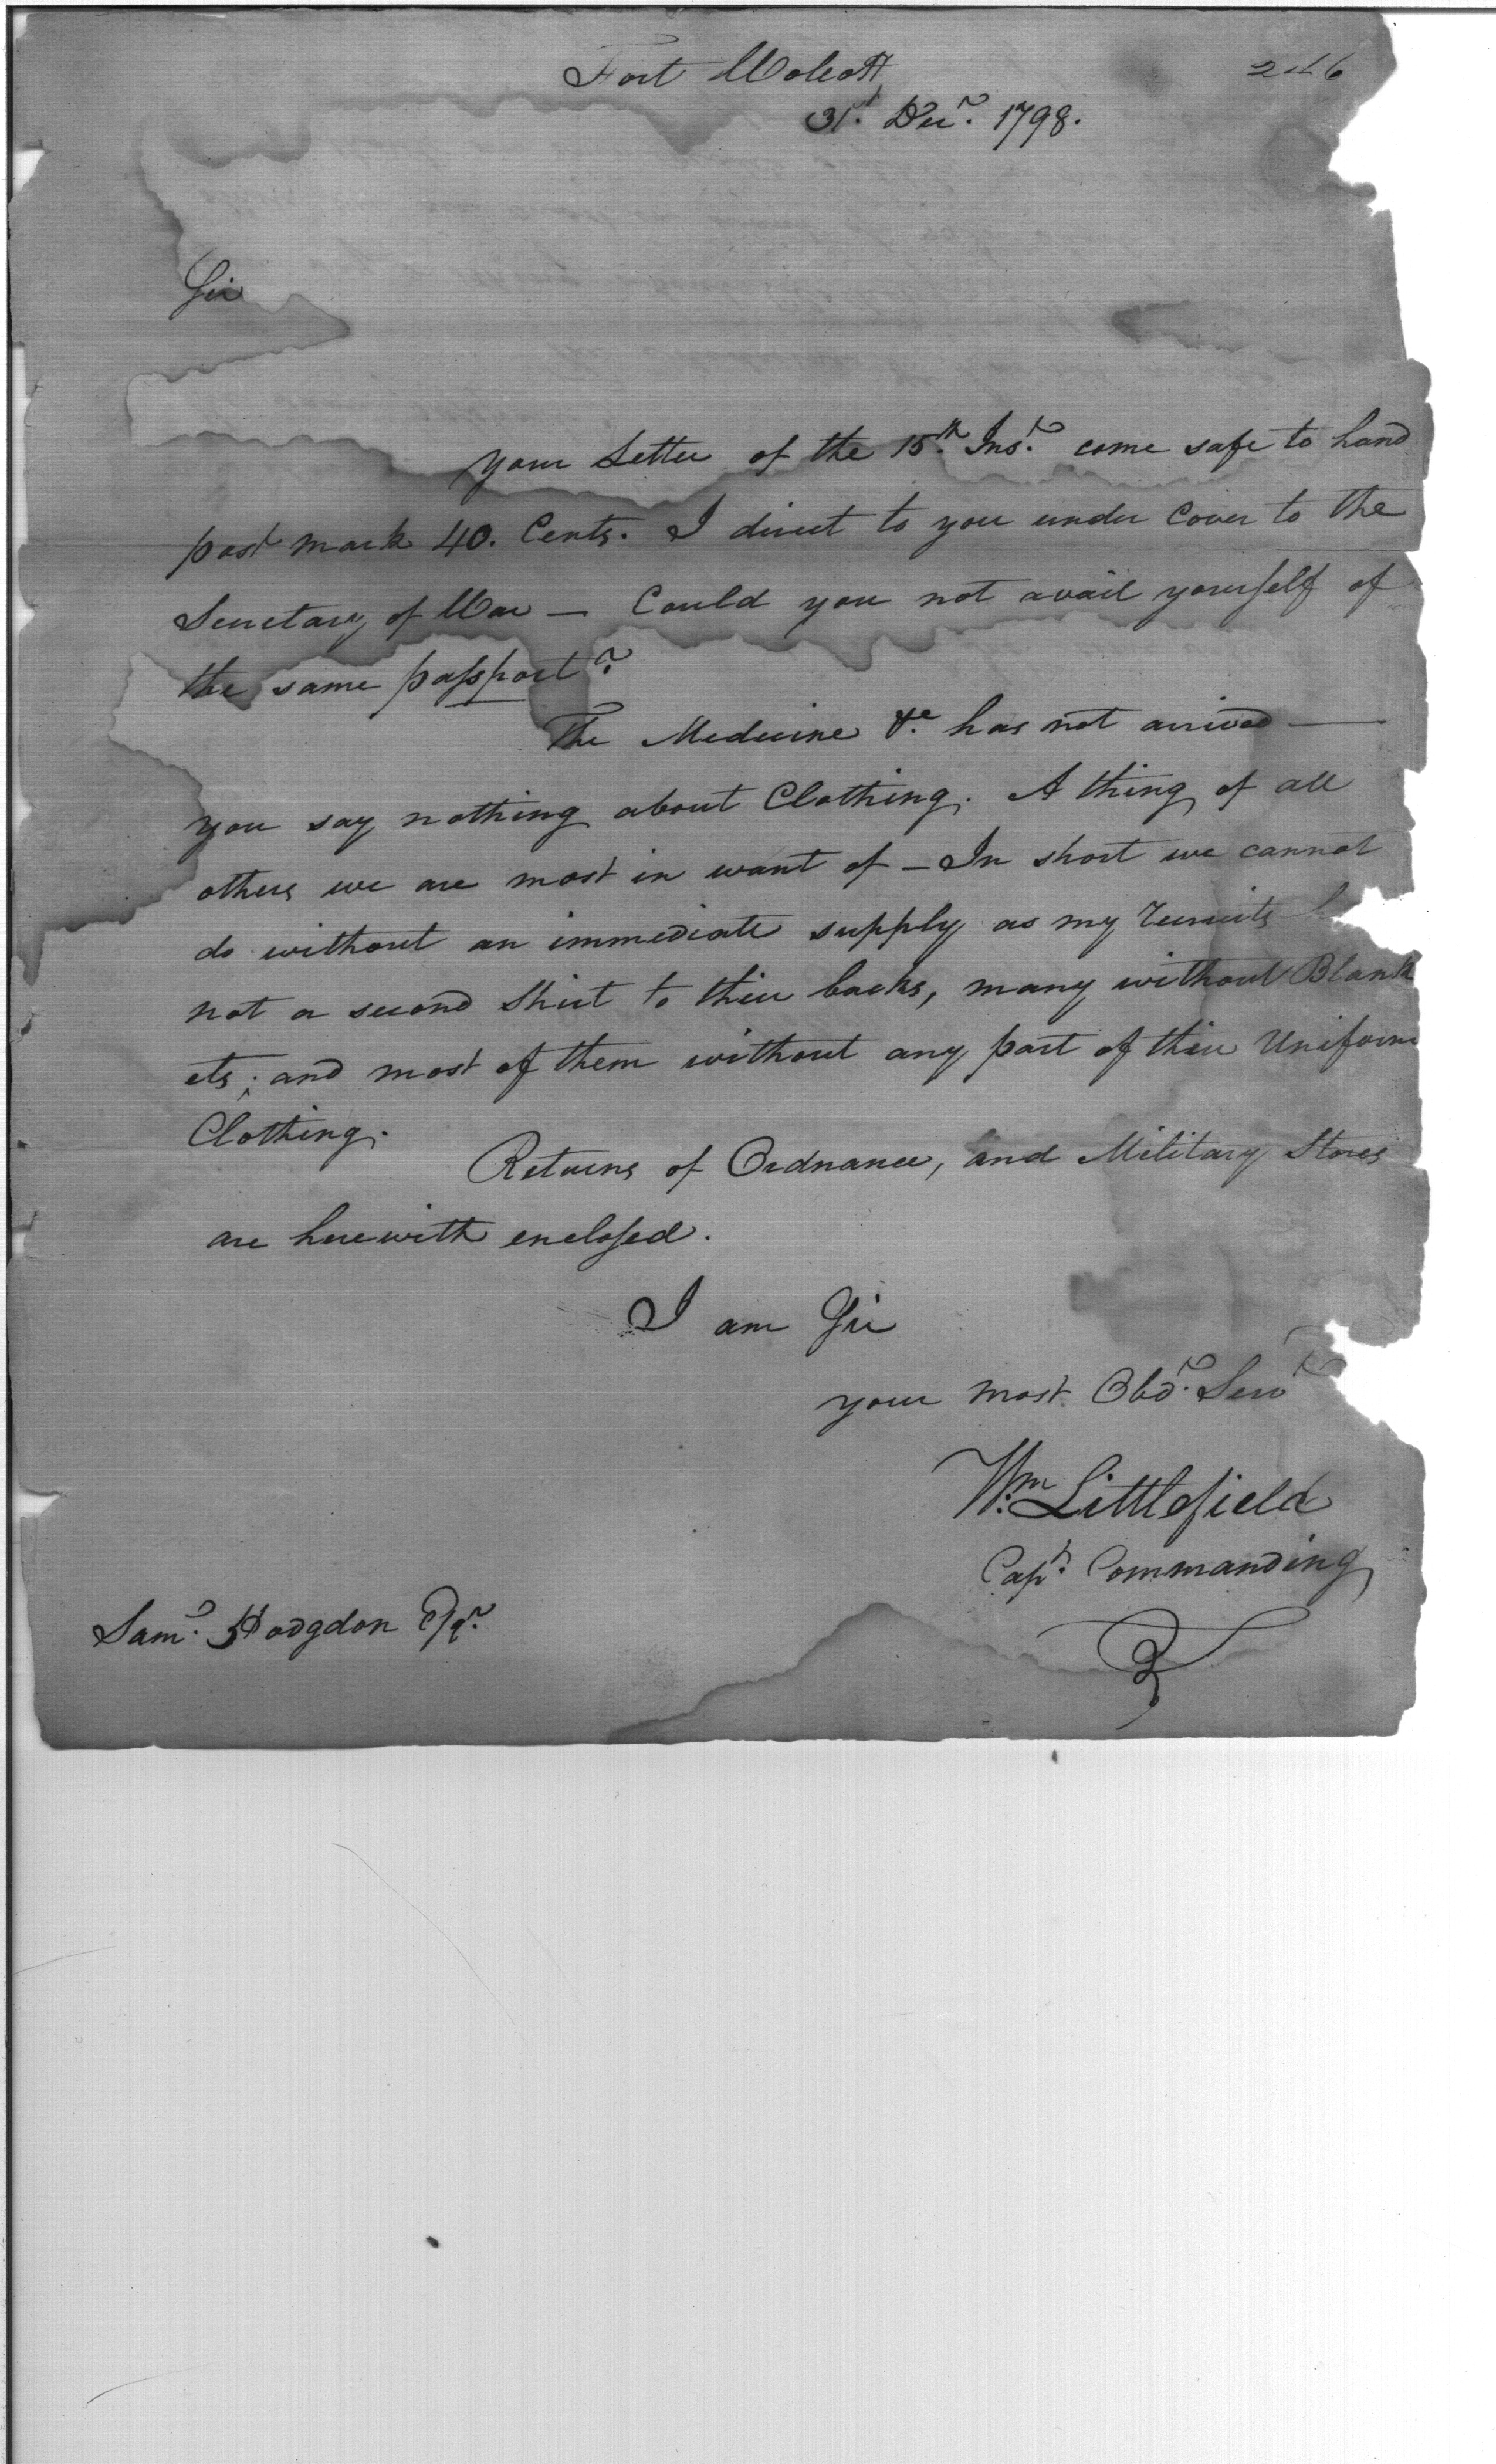 Fort Wolcott
246
31st. Decr. 1798.
Sir
Your Letter of the 15th. Inst. come safe to hand
post mark 40. Cents. I direct to you under Cover to the
Secretary of War — Could you not avail yourself of
the same passport?
The Medicine &c. has not arrived —
you say nothing about Clothing. A thing of all
others we are most in want of — In short we cannot
do without an immediate supply as my recruits
not a second Shirt to their backs, many without Blank
ets; and most of them without any part of their Uniform
Clothing.
Returns of Ordnance, and Military Stores
are herewith enclosed.
I am Sir
your most Obdt. Servt
Wm. Littlefield
Capt. Commanding
Saml. Hodgdon Esqr.